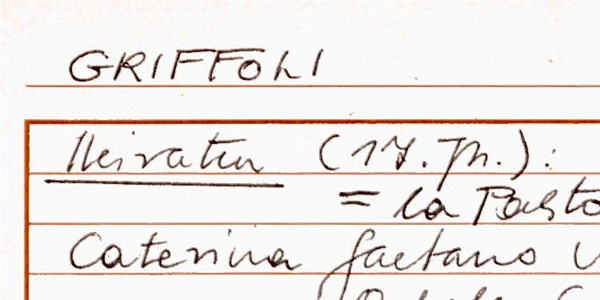 GRIFFOLI
Heiraten (17. Jh.):
= la Pasto
Caterina Gaetano